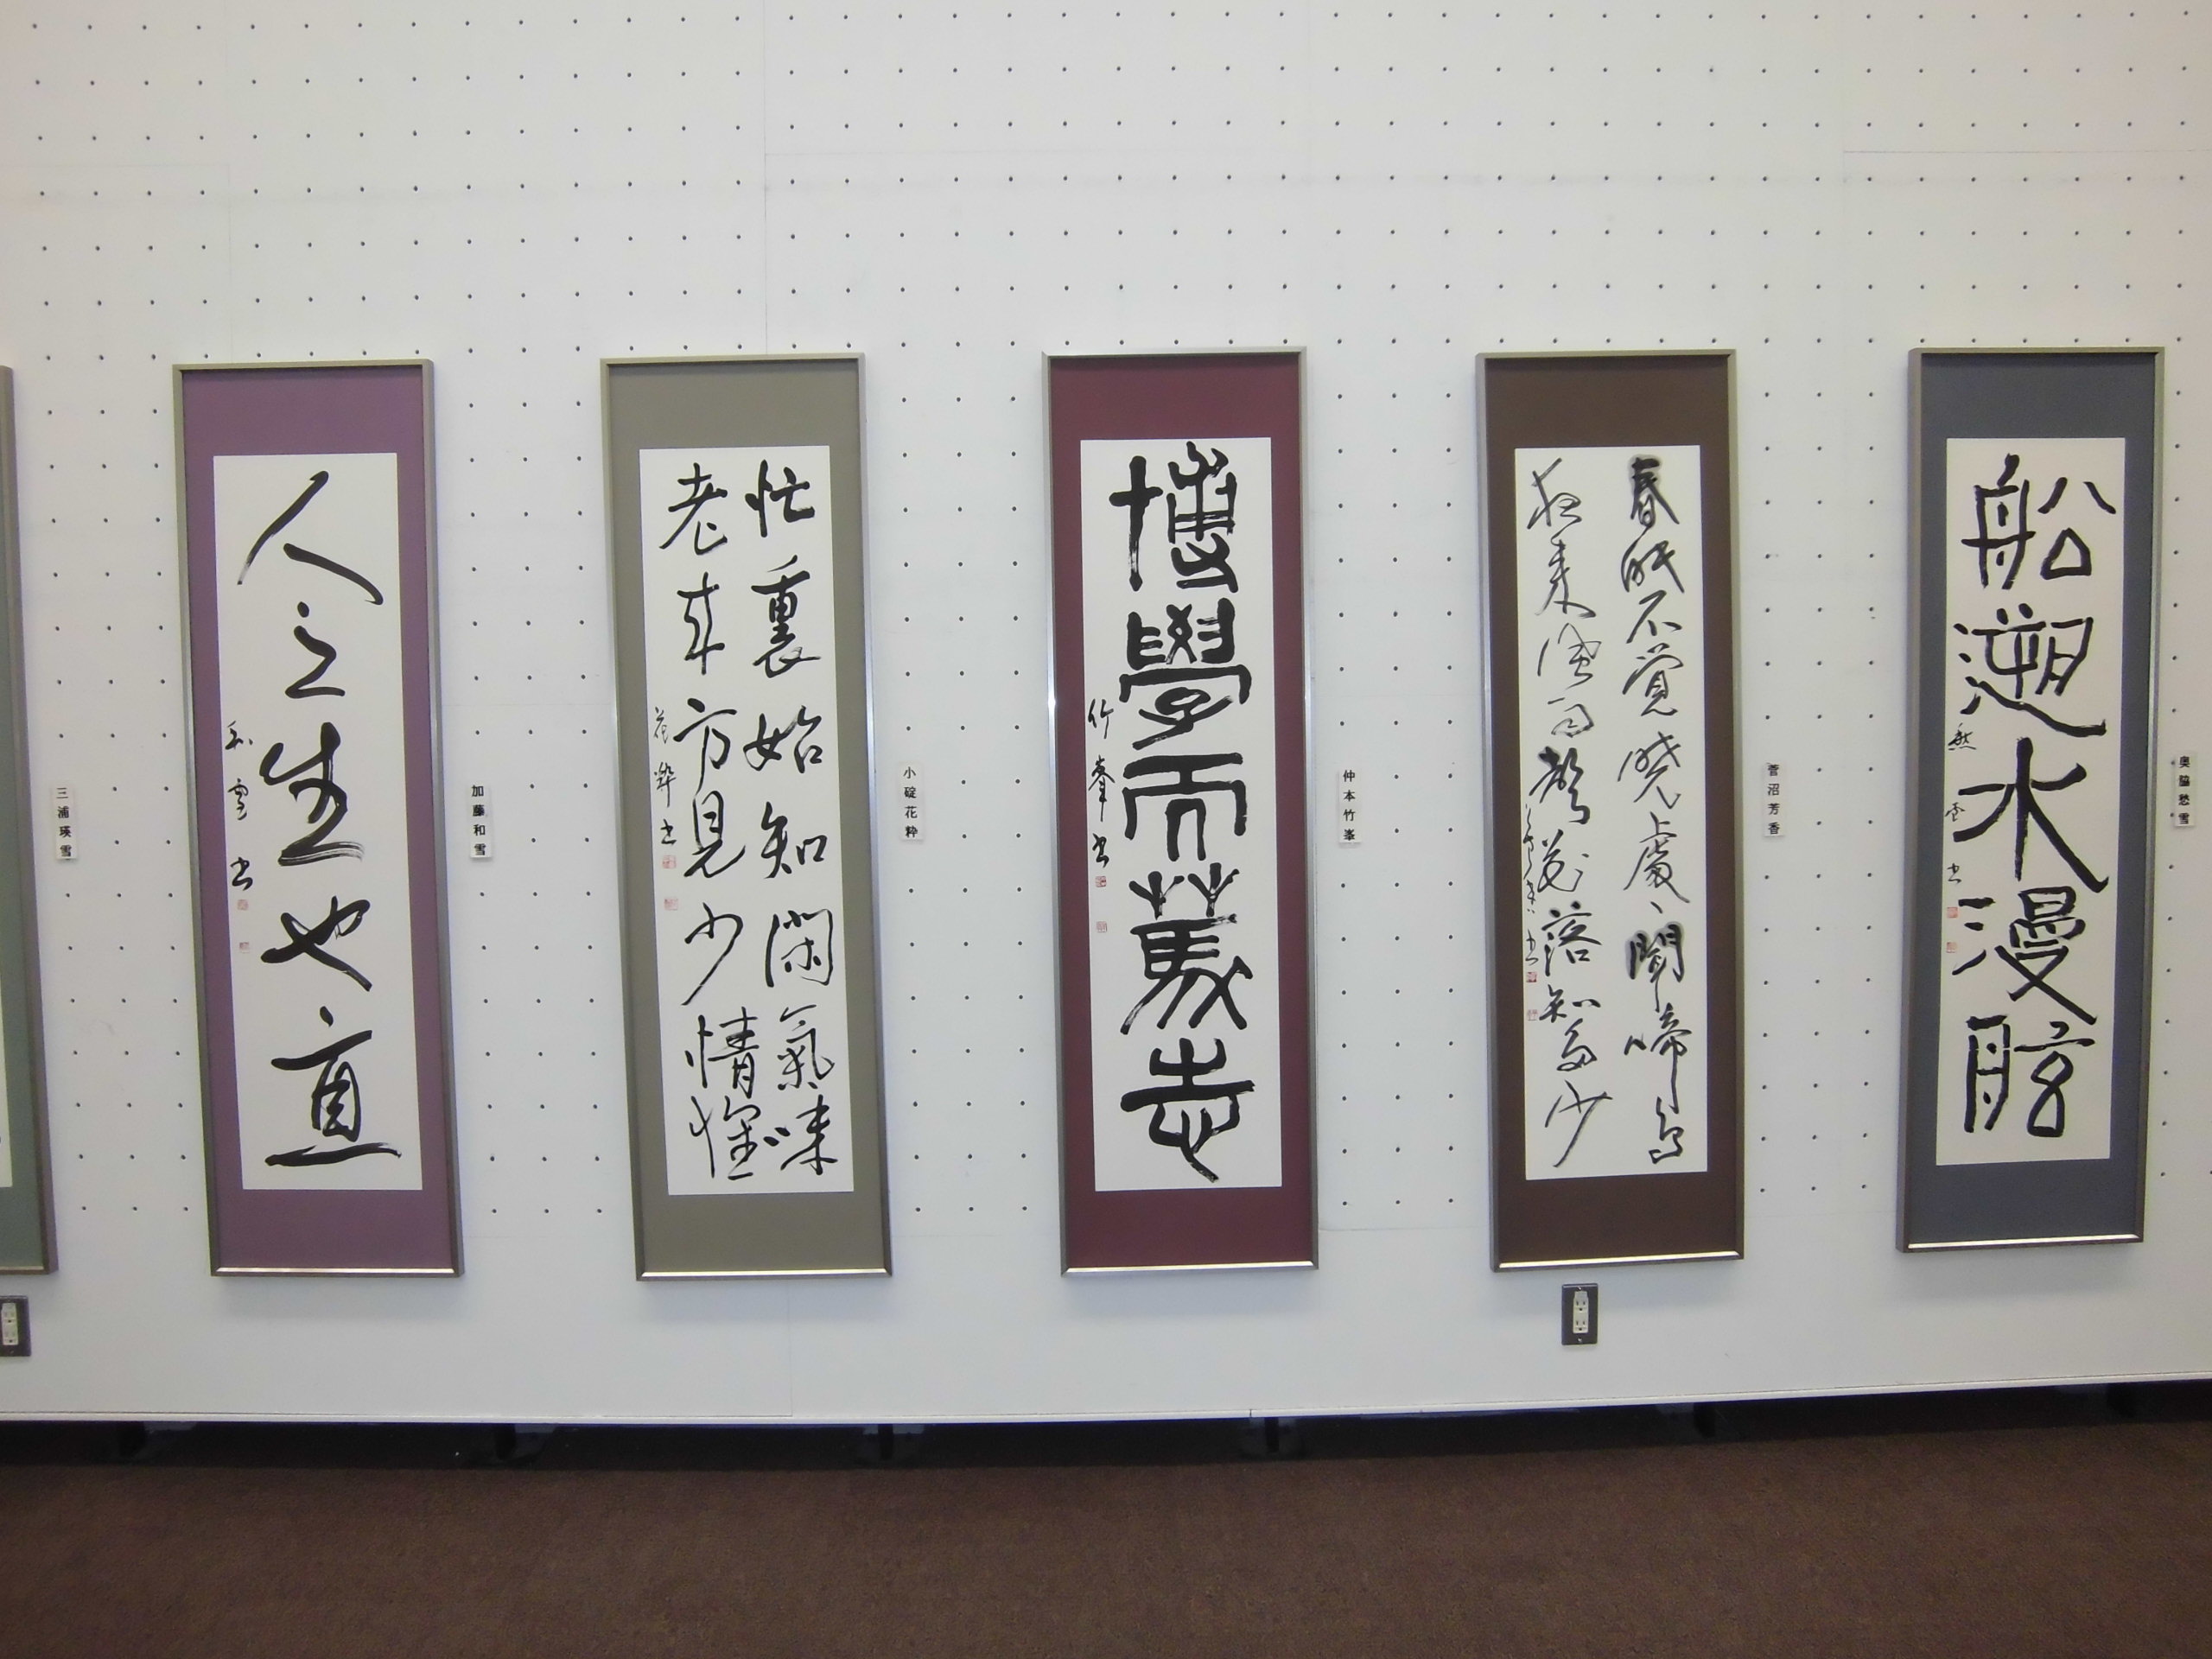 奥脇愁雪
船遡水漫舷
愁雪書
菅沼芳香
春眠不覚暁處〻聞啼鳥
夜来風雨聲花落知多少
芳香書
仲本竹峯
博學而篤志
竹峯書
小碇花粋
忙裏始知閑氣味
老年方見少情
花粋書
加藤和雪
人之生也直
和雪書
三浦瑛雪